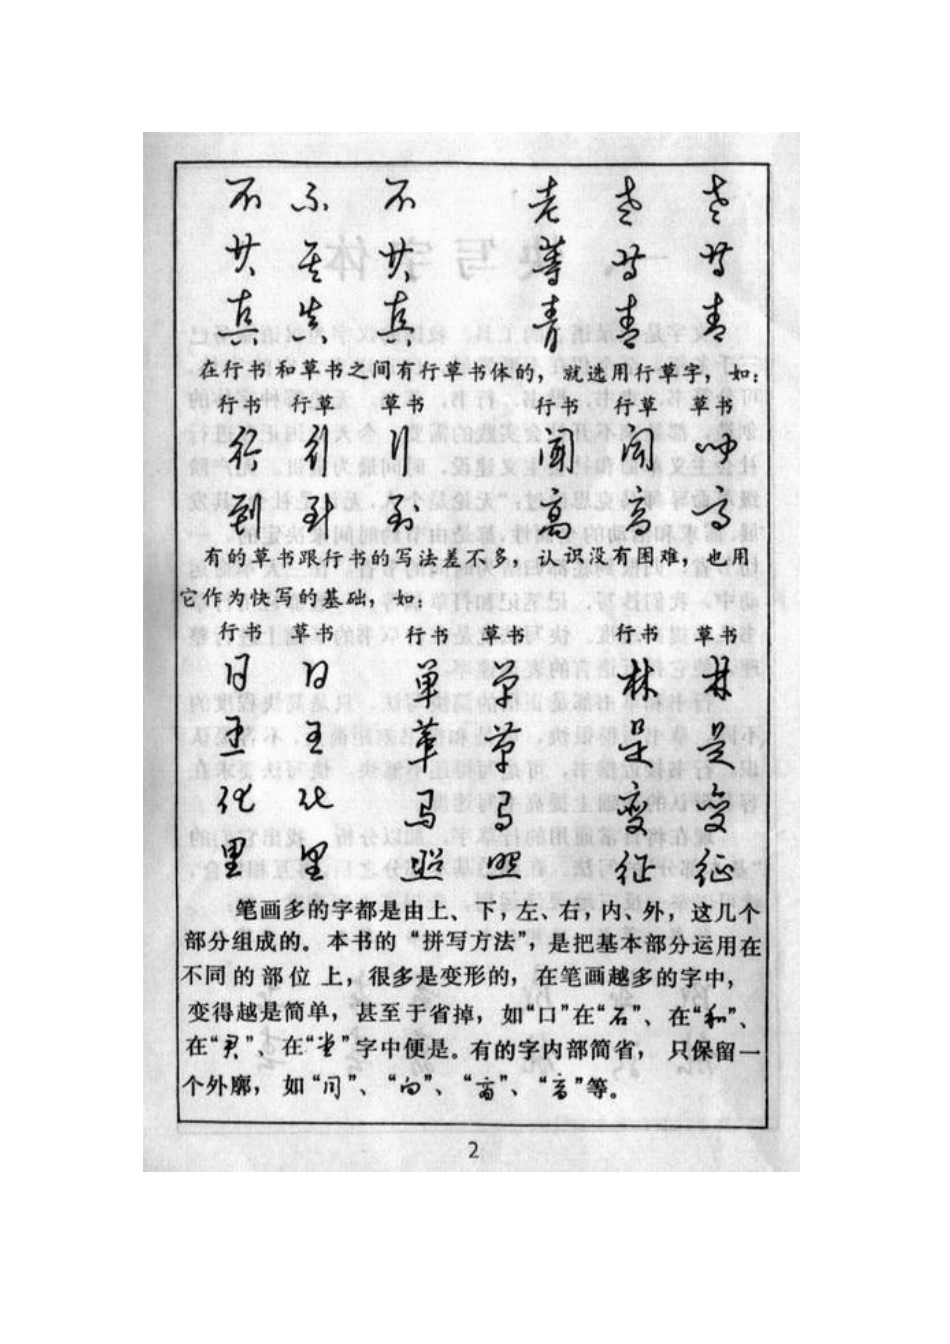 不 不 不 老 老 老
共 共 共 等 等 等
真 真 真 青 青 青
在行书和草书之间有行草书体的，就选用行草字，如：
行书 行草 草书 行书 行草 草书
行 行 行 闻 闻 闻
到 到 到 高 高 高
有的草书跟行书的写法差不多，认识没有困难，也用
它作为快写的基础，如：
行书 草书 行书 草书 行书 草书
日 日 单 单 林 林
王 王 革 草 是 是
化 化 马 马 变 变
里 里 照 照 征 征
笔画多的字都是由上、下，左、右，内、外，这几个
部分组成的。本书的“拼写方法”，是把基本部分运用在
不同的部位上，很多是变形的，在笔画越多的字中，
变得越是简单，甚至于省掉，如“口”在“石”、在“和”、
在“君”、在“堂”字中便是。有的字内部简省，只保留一
个外廓，如“问”、“向”、“商”、“高”等。
2